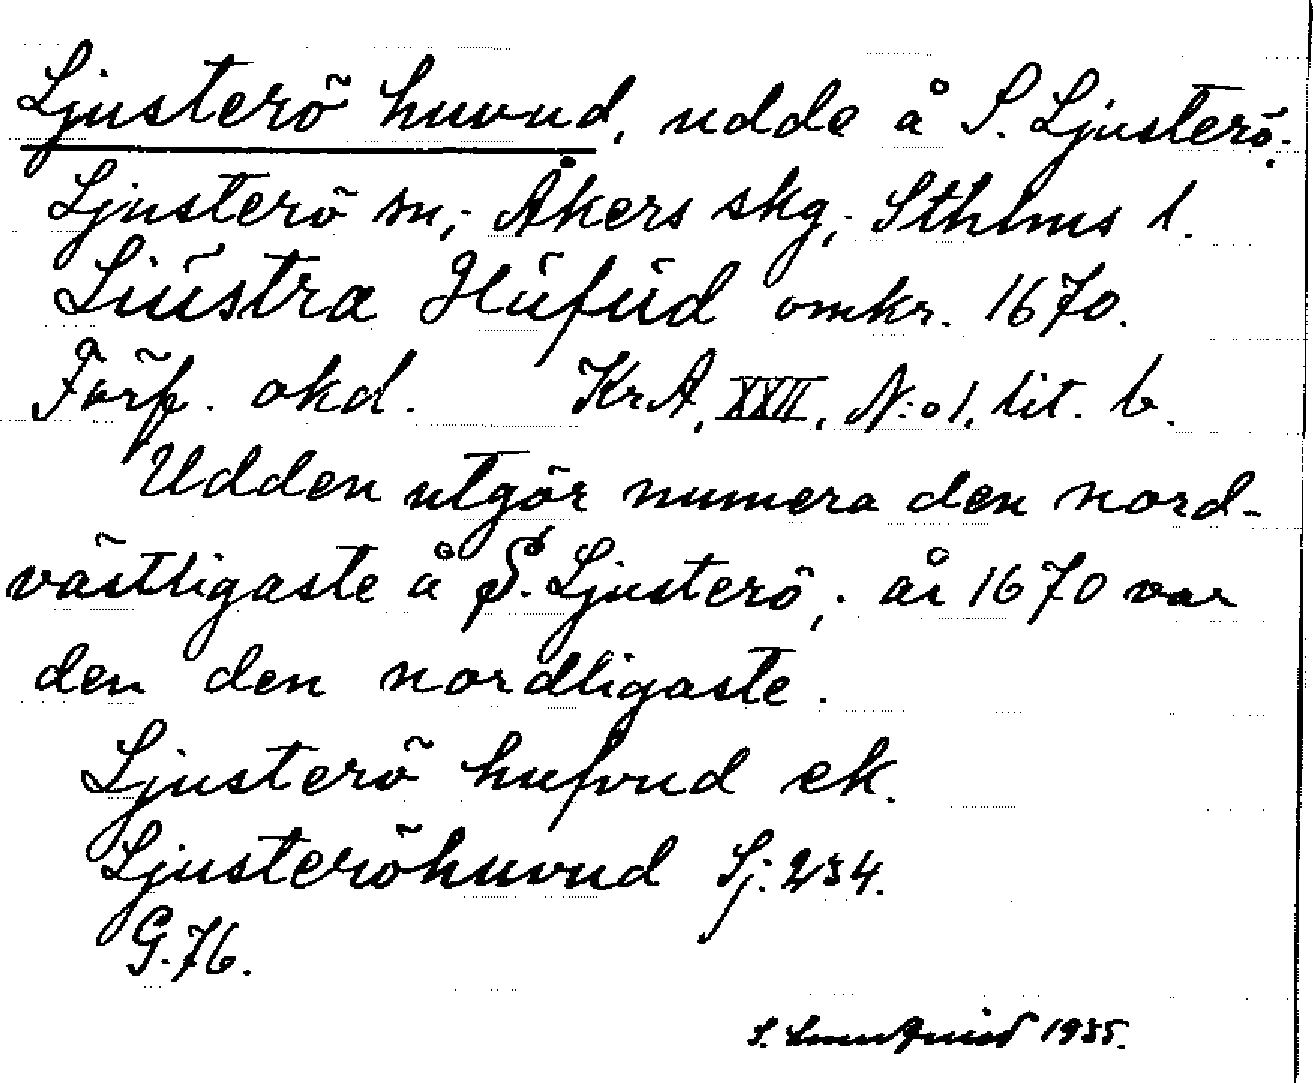 Ljusterö huvud, udde å S. Ljusterö;
Ljusterö sn; Åkers skg, Sthlms l.
Liústra Húfúd omkr. 1670.
Förf. okd. KrA, XXII, N:o 1, lit. b.
Udden utgör numera den nord-
västligaste å S. Ljusterö; år 1670 var
den den nordligaste.
Ljusterö hufvud ek.
Ljusteröhuvud Sj. 234.
G. 76.
S. 1935.